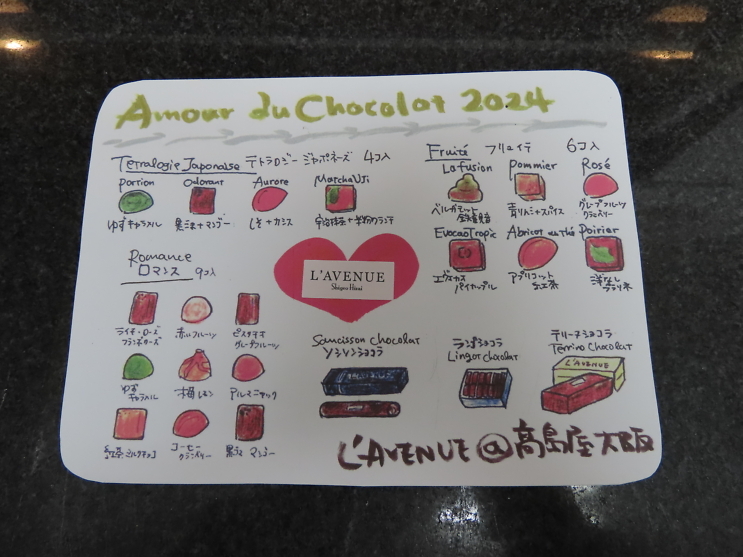 Amour du Chocolat 2024
Tetralogie Japonaise テトラロジー ジャポネーズ 4コ入
Portion Odorant Aurore Marcha Uji
ゆずキャラメル 黒ゴマ+マンゴー しそ+カシス
Fruité フリュイテ 6コ入
La fusion Pommier Rosé
ベルガモット 青りんご+スパイス グレープフルーツ
クランベリー
Evocao Tropic Abricot au thé Poirier
エヴォカオ アプリコット 洋なし
パイナップル 紅茶
Romance
ロマンス 9コ入
ライチ・ローズ 赤いフルーツ ピスタチオ
フランボワーズ グレープフルーツ
ゆず 梅レモン アルマニャック
キャラメル
紅茶ミルクチョコ コーヒー 黒ゴマ マンゴー
クランベリー
L'AVENUE
Shigeo Hirai
Saucisson chocolat
ソシソンショコラ
ランゴショコラ
Lingot chocolat
テリーヌショコラ
Terrine Chocolat
L'AVENUE
L'AVENUE @ 高島屋 大阪